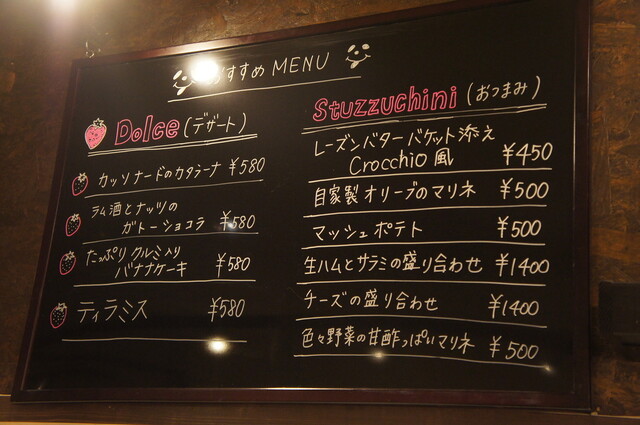 おすすめ MENU
Dolce (デザート)
カッソナードのカタラーナ ¥580
ラム酒とナッツの
ガトーショコラ ¥580
たっぷりクルミ入り
バナナケーキ ¥580
ティラミス ¥580
Stuzzuchini (おつまみ)
レーズンバター バケット添え
Crocchio風 ¥450
自家製オリーブのマリネ ¥500
マッシュポテト ¥500
生ハムとサラミの盛り合わせ ¥1400
チーズの盛り合わせ ¥1400
色々野菜の甘酢っぱいマリネ ¥500